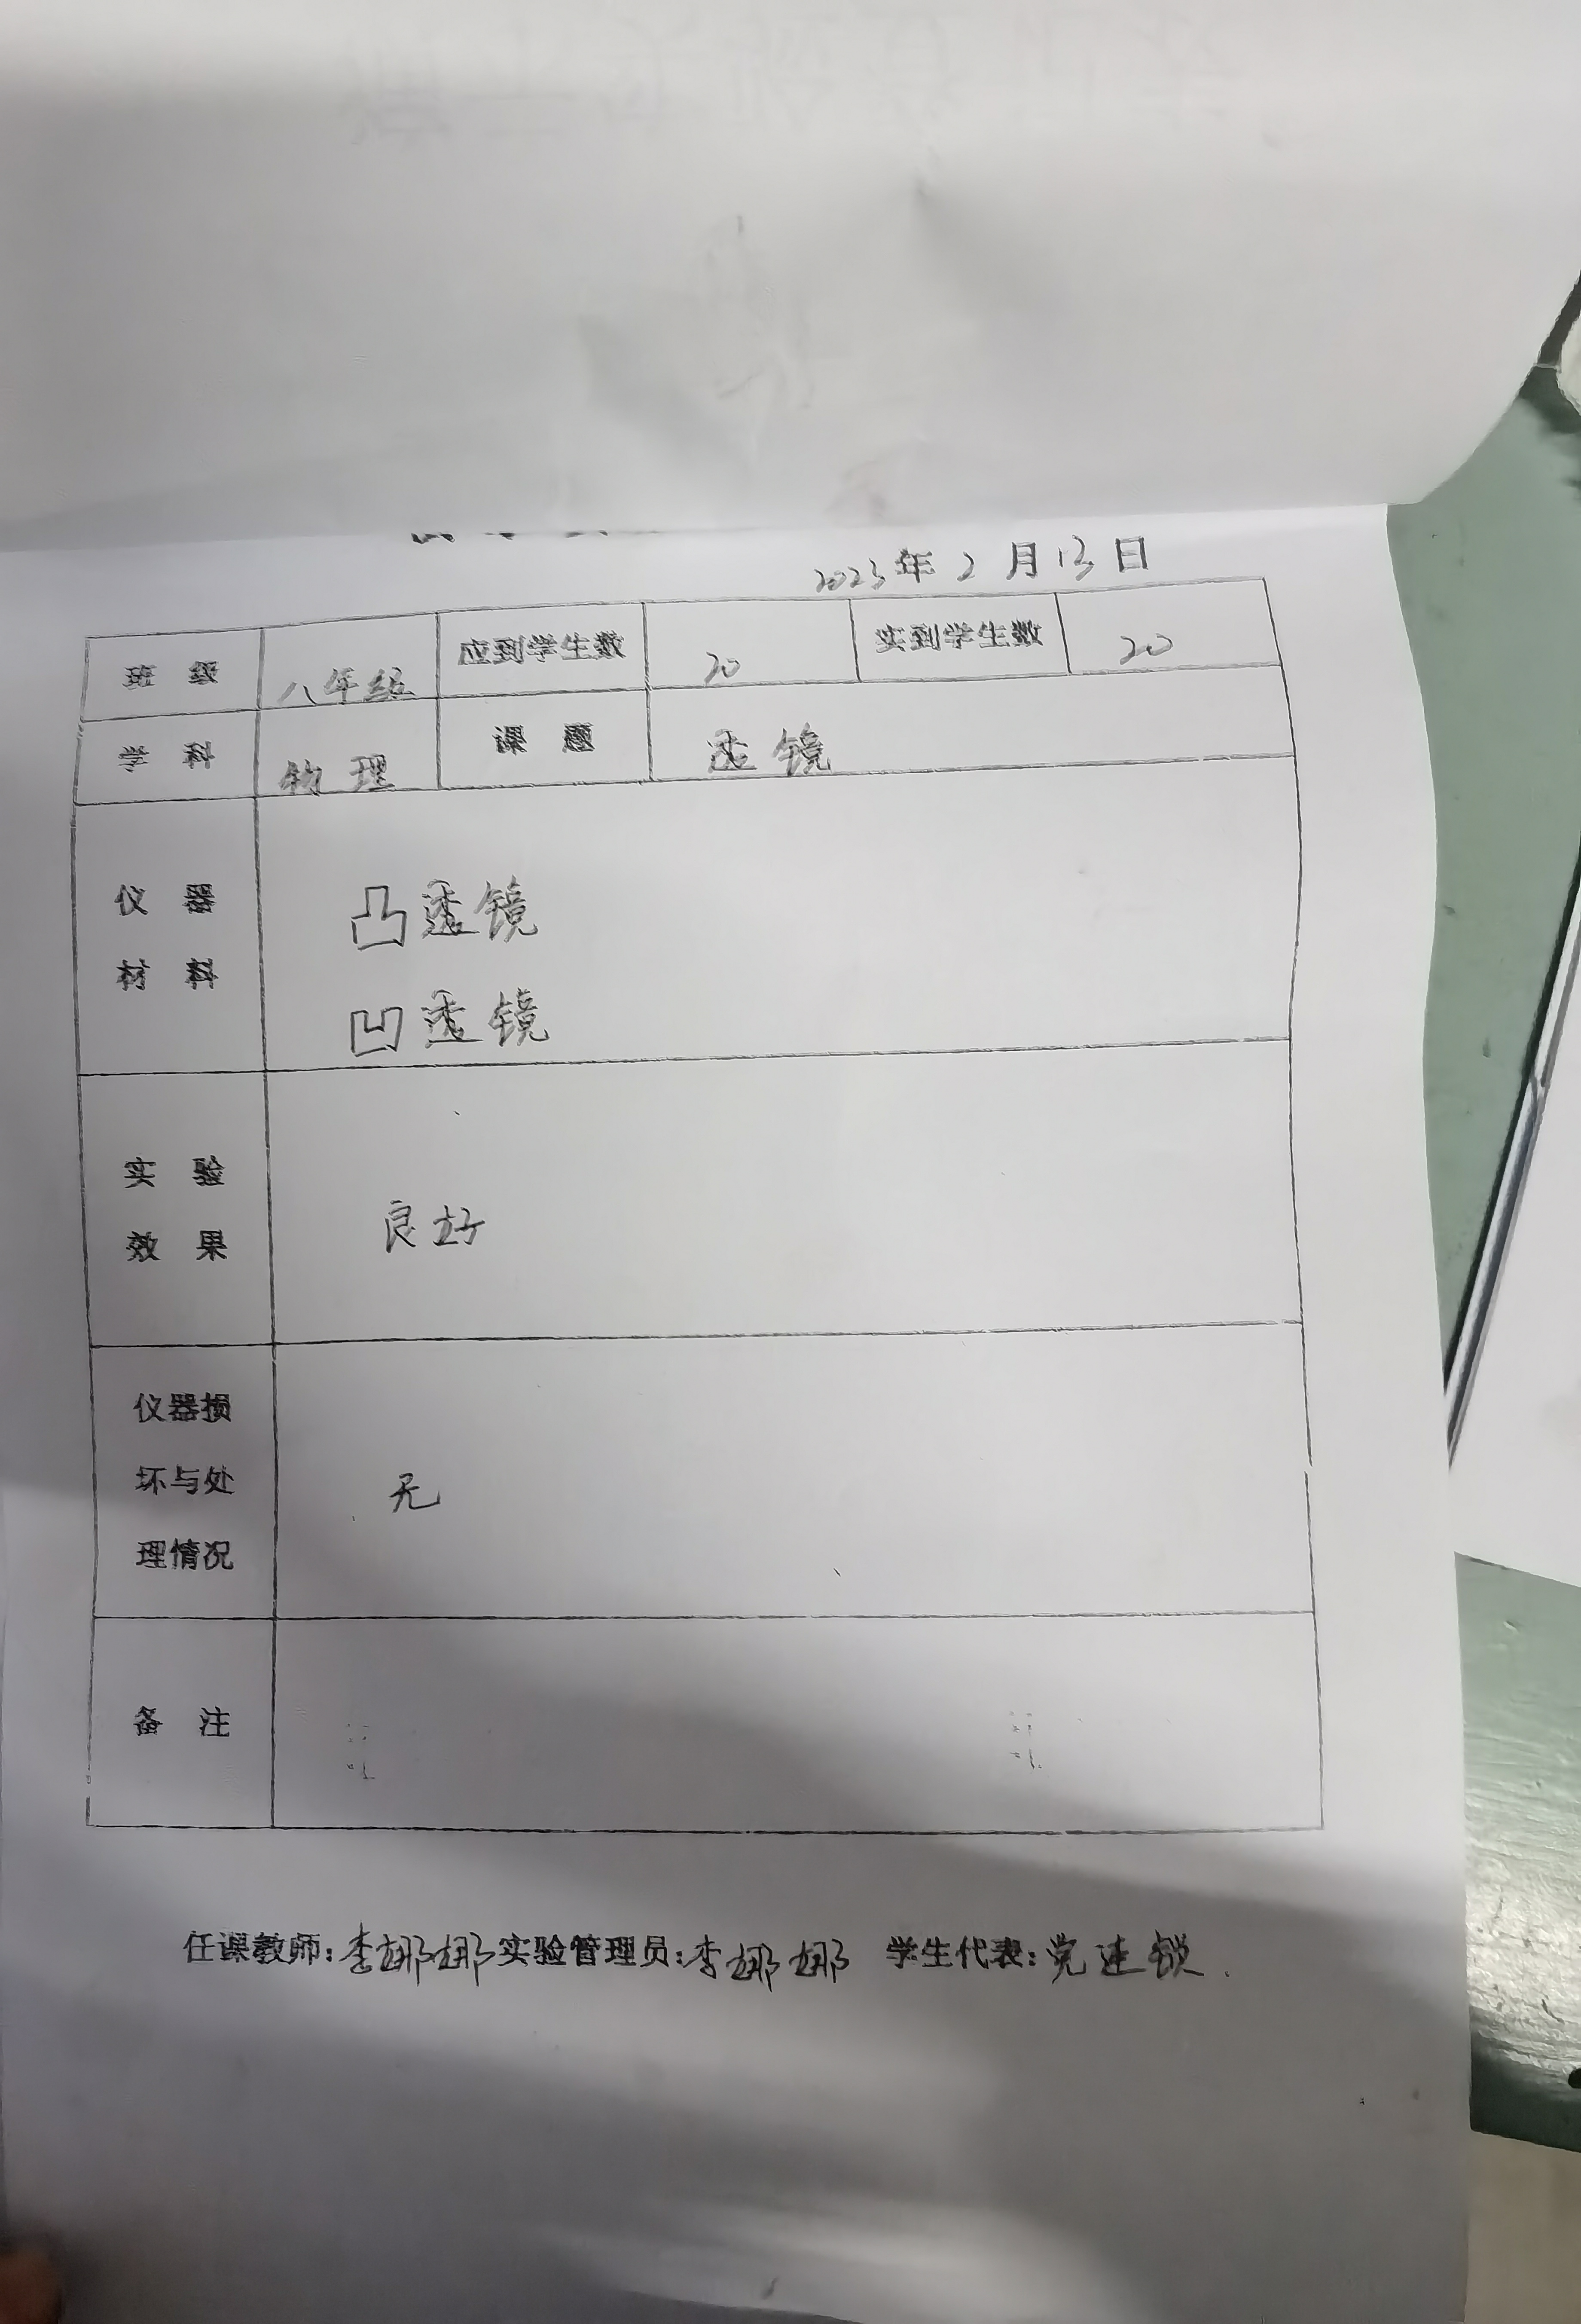 2023年2月13日
班 级 八年级 应到学生数 20 实到学生数 20
学 科 物理 课 题 透镜
仪 器
材 料
凸透镜
凹透镜
实 验
效 果
良好
仪器损
坏与处
理情况
无
备 注
任课教师:李娜娜 实验管理员:李娜娜 学生代表:党连锁